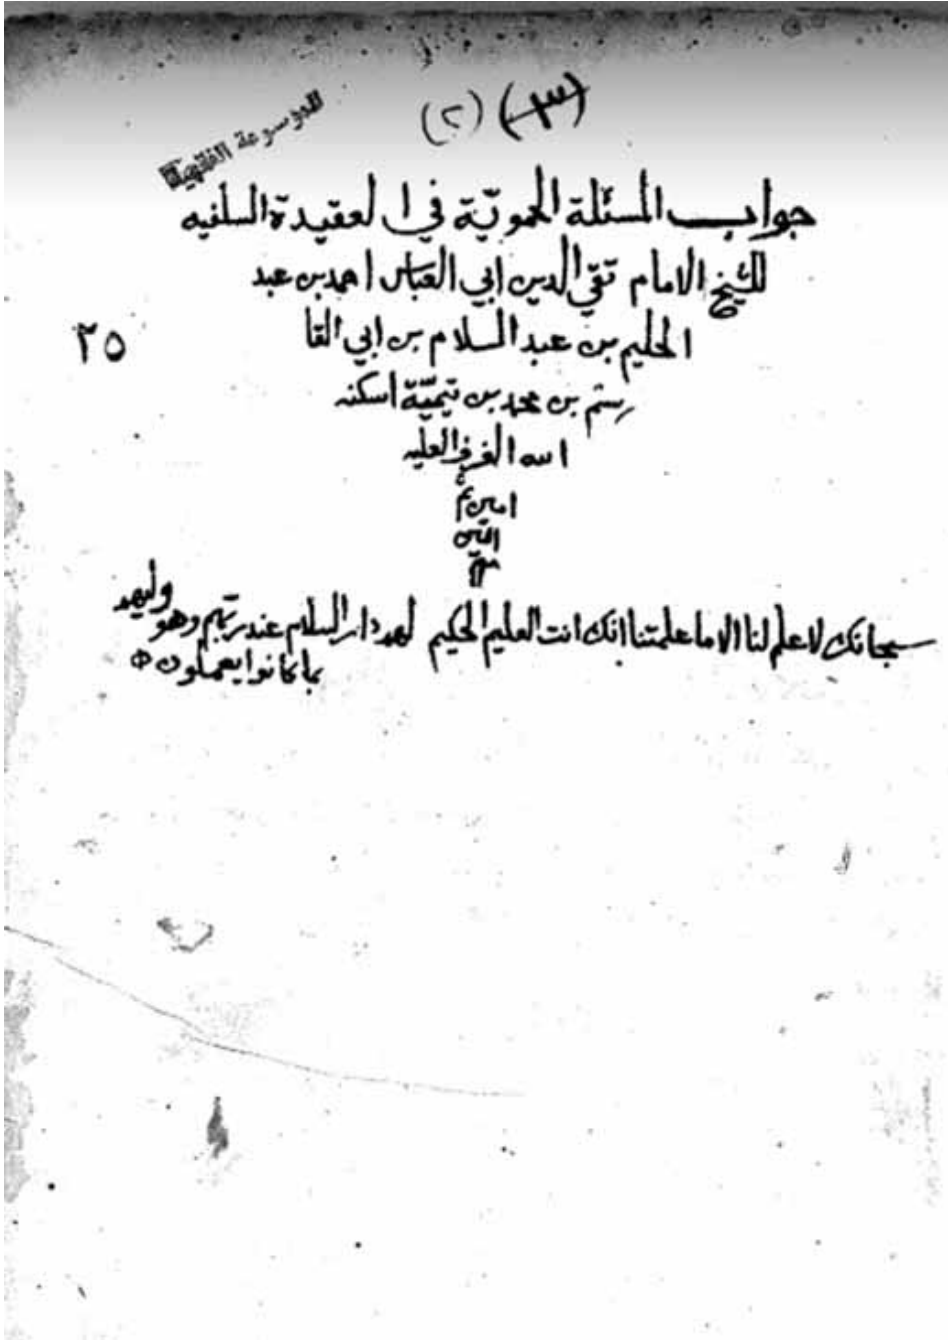 (٣) (٢)
الموسوعة الفقهية
جواب المسئلة الحمويّة في العقيدة السلفيه
للشيخ الامام تقي الدين ابي العباس احمد بن عبد
الحليم بن عبد السلام بن ابي القا
٢٥
سم بن محمد بن تيميّة اسكنه
الله الغرف العليه
امين
سبحانك لا علم لنا الا ما علمتنا انك انت العليم الحكيم لهم دار السلام عند ربهم وهو وليهم
بما كانوا يعملون